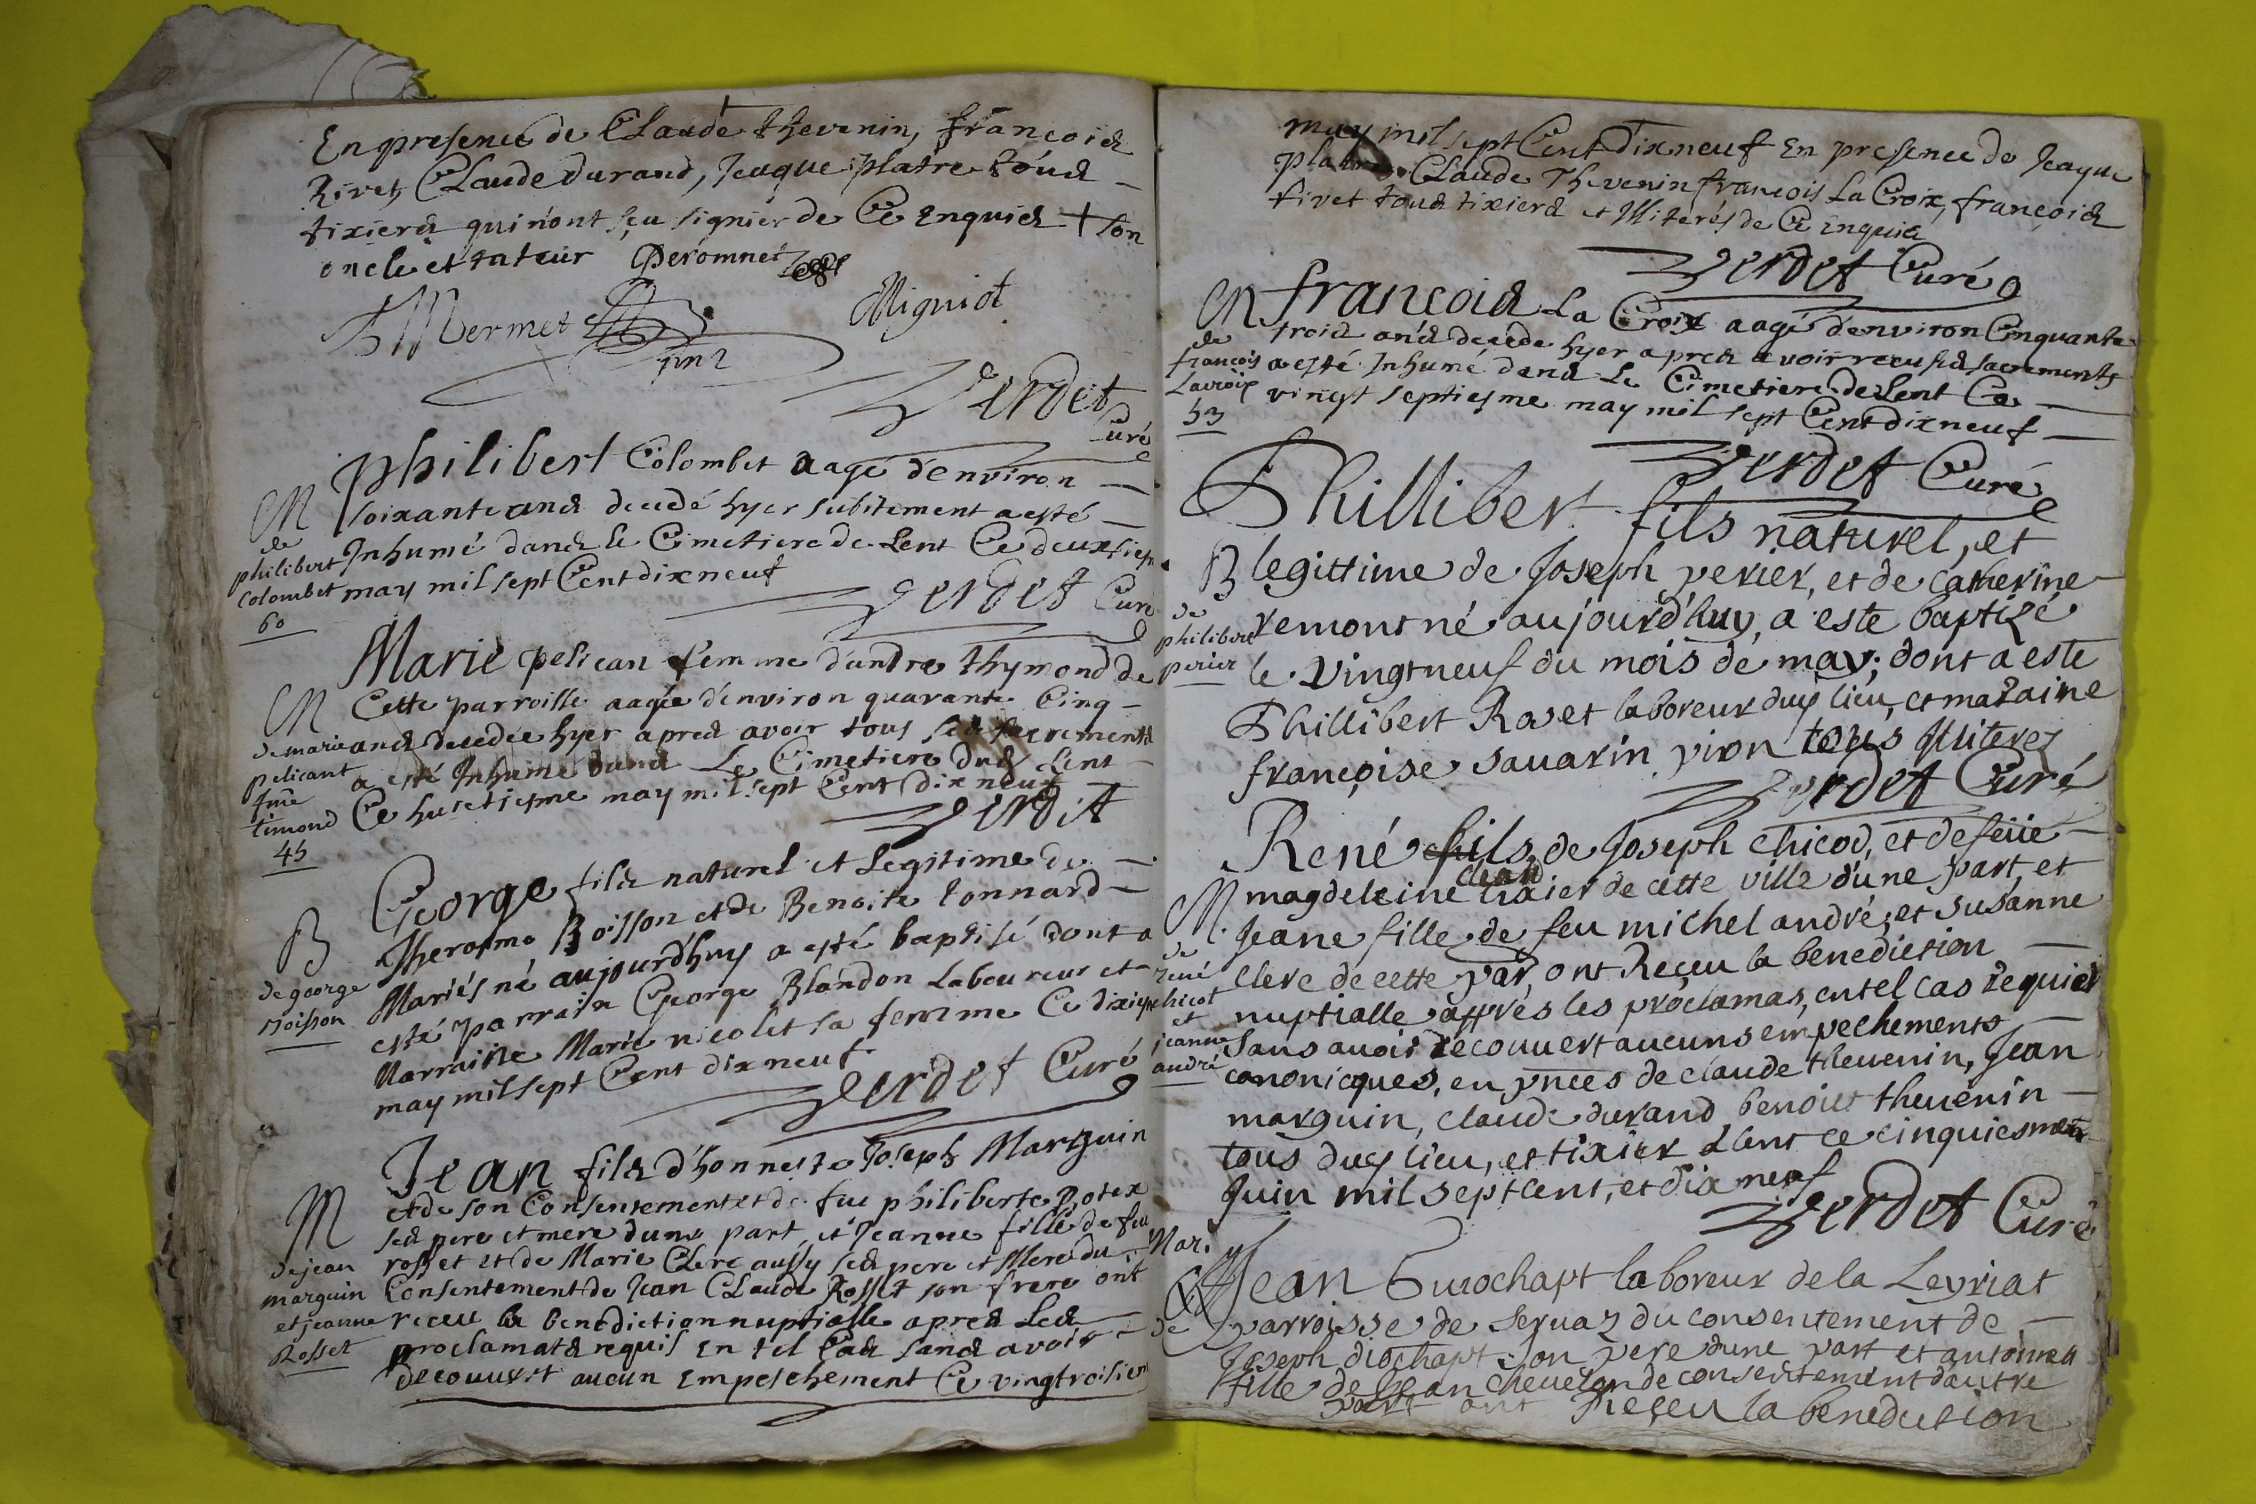 En presence de Claude thevenin, françois
Rivet, Claude durand, Jeaque platre tous
tixiers qui n'ont sçu signier de Ce Enquis + son
oncle et tuteur Peromnet
Mermet Migniot
Verdet
Curé
philibert Colombet aagé d'environ
soixante ans decedé hyer subitement a esté
Inhumé dans le Cimetiere de Lent Ce deuxsiesm
may mil sept Cent dix neuf
Verdet Curé
M
de
philibert
Colombet
60
Marie pelican femme d'andre thymond de
Cette parroisse aagée d'environ quarante Cinq
ans decedée hyer apres avoir tous ses sacrements
a esté Inhumé dans Le Cimetiere duds Lent
Ce huictiesme may mil sept Cent dix neuf
Verdet
M
de marie
pelicant
fme
timond
45
George fils naturel et Legitime de
Jherosme Boisson et de Benoite tonnard
Mariés né aujourd'huy a esté baptisé dont a
esté parrain George Blandon Laboureur et
Marraine Marie nicolet sa femme Ce dixiesme
may mil sept Cent dix neuf
Verdet Curé
B
de george
Boisson
Jean fils d'honneste Joseph Marguin
et de son Consentement et de fue philiberte Botex
ses pere et mere d'une part, et Jeanne fille de feu
rosset et de Marie Clerc aussy ses pere et Mere du
Consentement de Jean Claude Rosset son frere ont
receu la benediction nuptialle apres Les
proclamats requis En tel Cas sans avoir
decouvert aucun Empeschement Ce vingtroisiem
M
de jean
marguin
et jeanne
Rosset
may mil sept Cent Dix neuf En presence de Jeaque
platre, Claude Thevenin françois La Croix, françois
rivet tous tixiers et Illiterés de Ce Enquis
Verdet Curé
françois La Croix aagé d'environ Cinquante
trois ans decede hyer apres avoir receu ses sacrements
a esté Inhumé dans Le Cimetiere de Lent Ce
vingt septiesme may mil sept Cent dix neuf
Verdet Curé
M
de
françois
Lacroix
53
Phillibert fils naturel, et
legittime de Joseph perier, et de catherine
remont né aujourd'huy, a este baptizé
le vingtneuf du mois de may; dont a este
Phillibert Roset laboreur duy lieu, et maraine
françoise savarin tous Illiterez
Verdet Curé
B
de
philibert
perier
René fils, de Joseph chicod, et de feüe
magdeleine tixier de cette ville d'une part, et
clair
Jeane fille de feu michel andré, et susanne
clerc de cette par, ont Reçeu la benediction
nuptialle apprés les proclamas, en tel cas requier
sans avoir decouvert aucuns empechements
canonicques, en pnces de claude thevenin, Jean
marguin, claude durand, benoict thevenin
tous duy lieu, et tixier a Lent ce cinquiesme
Juin mil sept cent, et dix neuf
Verdet Curé
M
de
rené
chicot
et
jeanne
andré
Jean Guiochapt laboreur de la Leyriat
parroisse de servaz du consentement de
Joseph diochapt son pere d'une part et antoinea
fille de Jean Chevelon de consentement d'autre
part ont Reçeu la benediction
Mar.
de